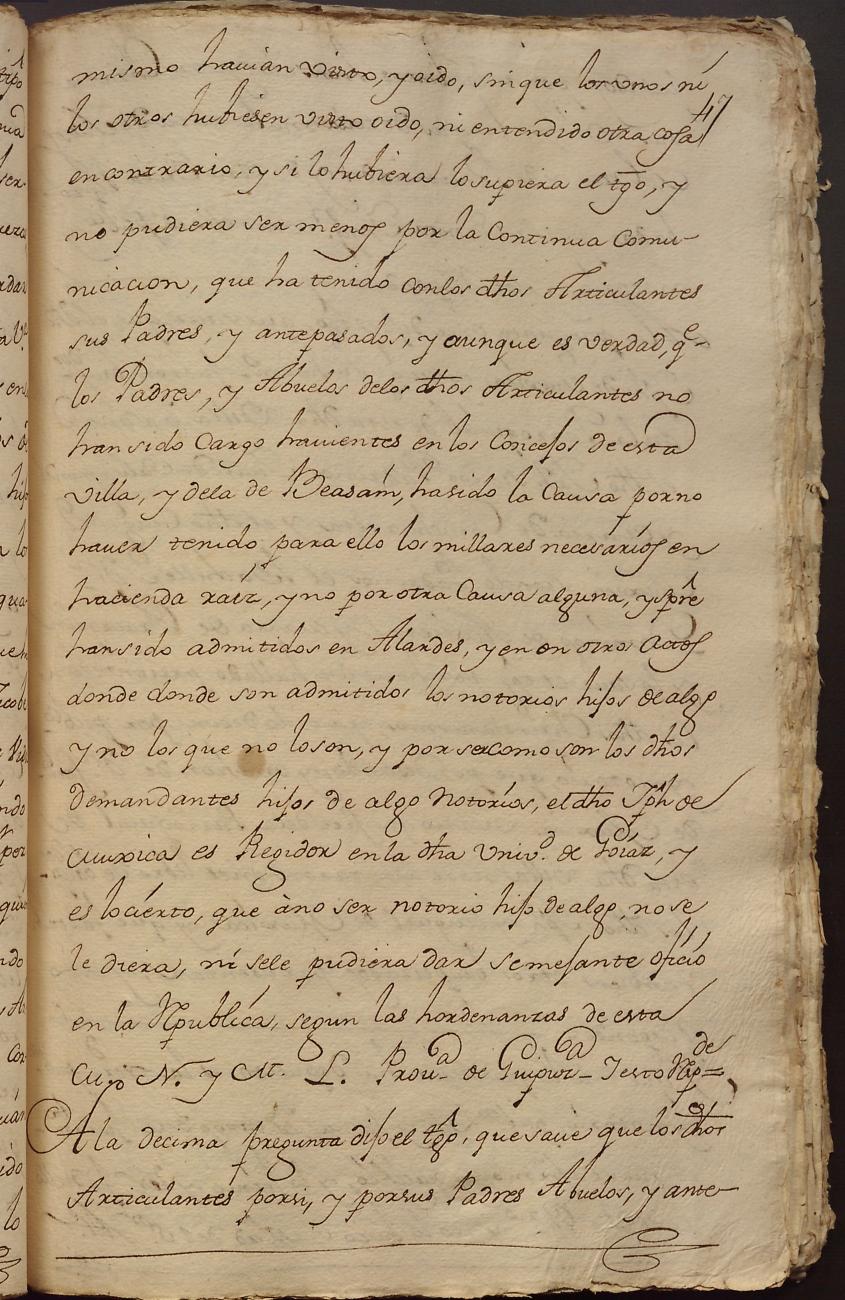 mismo hauian visto, y oido, sin que los vnos ni
47
los otros hubiesen visto oido, ni entendido otra cosa
en contrario, y si lo hubiera lo supiera el tgo, y
no pudiera ser menos por la Continua Comu-
nicacion, que ha tenido con los dhos Articulantes
sus Padres, y antepasados, y aunque es verdad, qe
los Padres, y Abuelos de los dhos Articulantes no
han sido Cargo hauientes en los Concejos de esta
Villa, y dela de Beasaín, ha sido la Causa por no
hauer tenido para ello los millares necesarios en
hacienda raíz, y no por otra Causa alguna, y spre
han sido admitidos en Alardes, y en on otros Actos
donde donde son admitidos los notorios hijos de algo
y no los que no lo son, y por ser como son los dhos
Demandantes hijos de algo Notorios, el dho Jph de
Muxica es Regidor en la dha Univd. de Goiaz, y
es lo cierto, que àno ser notorio hijo de algo, no se
le diera, ni se le pudiera dar semejante oficio
en la Republica, segun las hordenanzas de esta
M. N. y M. L. Proua de Guipuza Y esto Respde
A la decima pregunta dijo el tgo, que saue que los dhos
Articulantes por si, y por sus Padres Abuelos, y ante-